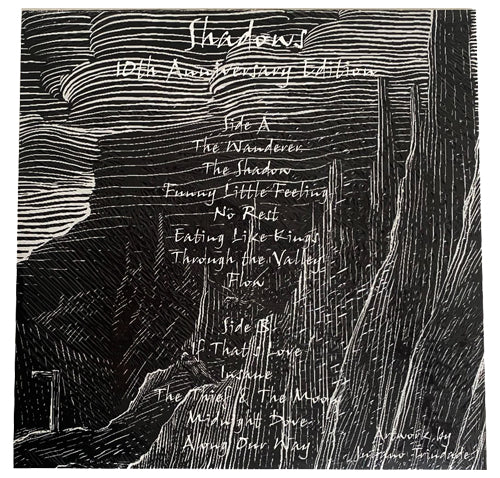 Shadows
10th Anniversary Edition
Side A
The Wanderer
The Shadow
Funny Little Feeling
No Rest
Eating Like Kings
Through the Valley
Flow
Side B
If That's Love
Insane
The Thief & The Moon
Midnight Dove
Along Our Way
Artwork by
Trindade